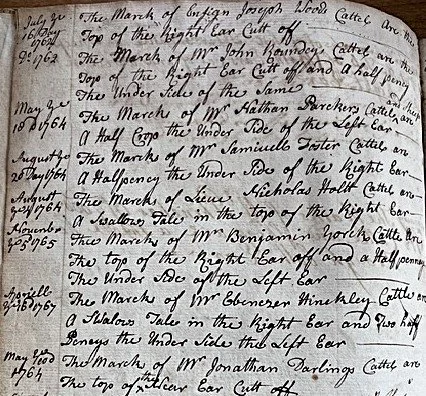 July ye The Marck of Ensign Joseph Wood Cattel Are the
16th Day 1762 Top of the Right Ear Cutt off
Do 1762 The Marck of Mr John Roundeys Cattel are the
Top of the Right Ear Cutt off and A half peney
The Under Side of the Same
May ye The Marck of Mr Nathan Parckers Cattel and Sheep are
18d 1764 A Half Crop the Under Side of the Left Ear
August ye The Marck of Mr Samuell Foster Cattel are
20 Day 1764 A Halfpeney the Under Side of the Right Ear
August The Marck of Lieue Nicholas Holtt Cattel are
1764 A Swalows Tale in the top of the Right Ear
November The Marck of Mr Benjamin Yorck Cattle Are
ye 25 1765 The top of the Right Ear off and a Halfpenney
The Under Side of the Left Ear
Apriell The Marck of Mr Ebenezer Hinckley Cattel are
ye 26 1767 A Swalow Tale in the Right Ear and Two half
Peneys the Under Side the Left Ear
May ye The Marck of Mr Jonathan Darlings Cattel are
1764 The top of the Near Ear Cutt off